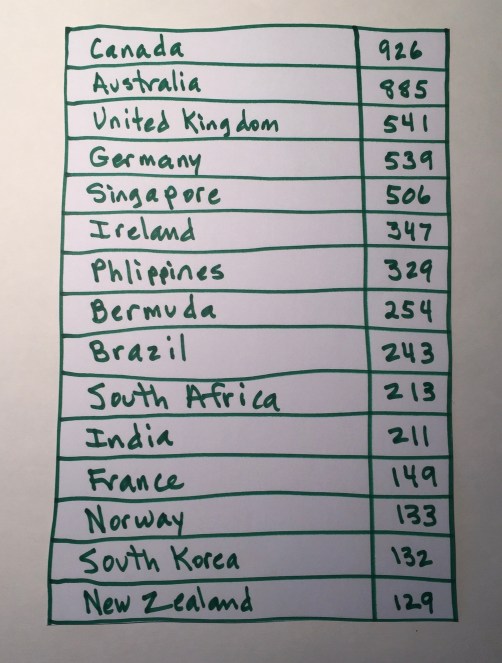 Canada 926
Australia 885
United Kingdom 541
Germany 539
Singapore 506
Ireland 347
Phlippines 329
Bermuda 254
Brazil 243
South Africa 213
India 211
France 149
Norway 133
South Korea 132
New Zealand 129